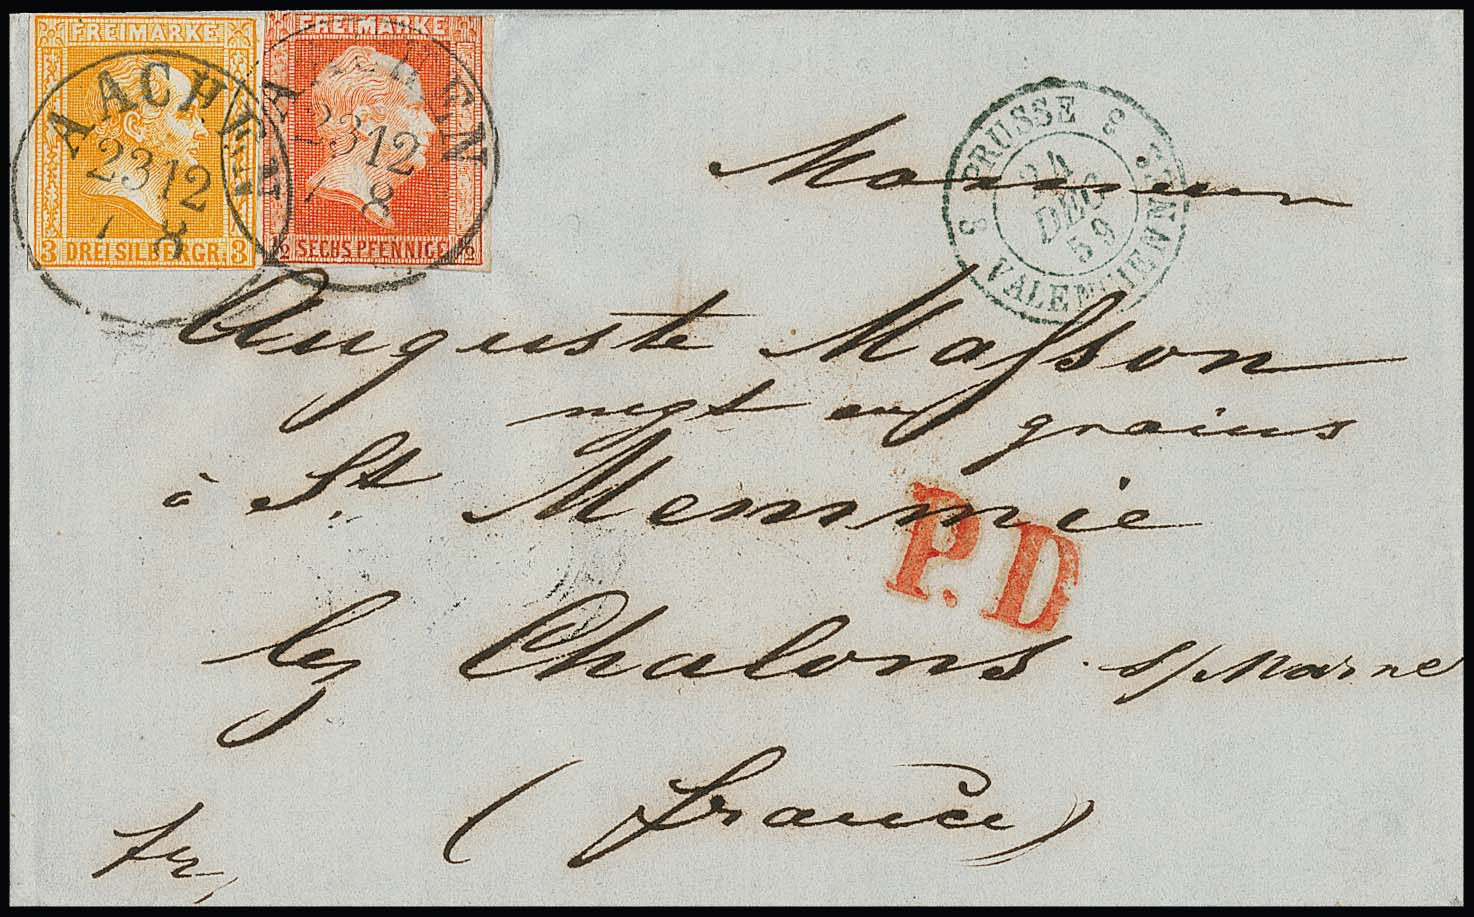 FREIMARKE
3 DREI SILBERGR. 3
FREIMARKE
1/2 SECHS PFENNIGE 1/2
AACHEN
23 12
7 8
AACHEN
23 12
7 8
8 PRUSSE 8
24
DEC
59
VALENCIENNES
Monsieur
Auguste Maſson
negt en grains
à St. Memmie
P.D
Chalons s/Marne
(france)